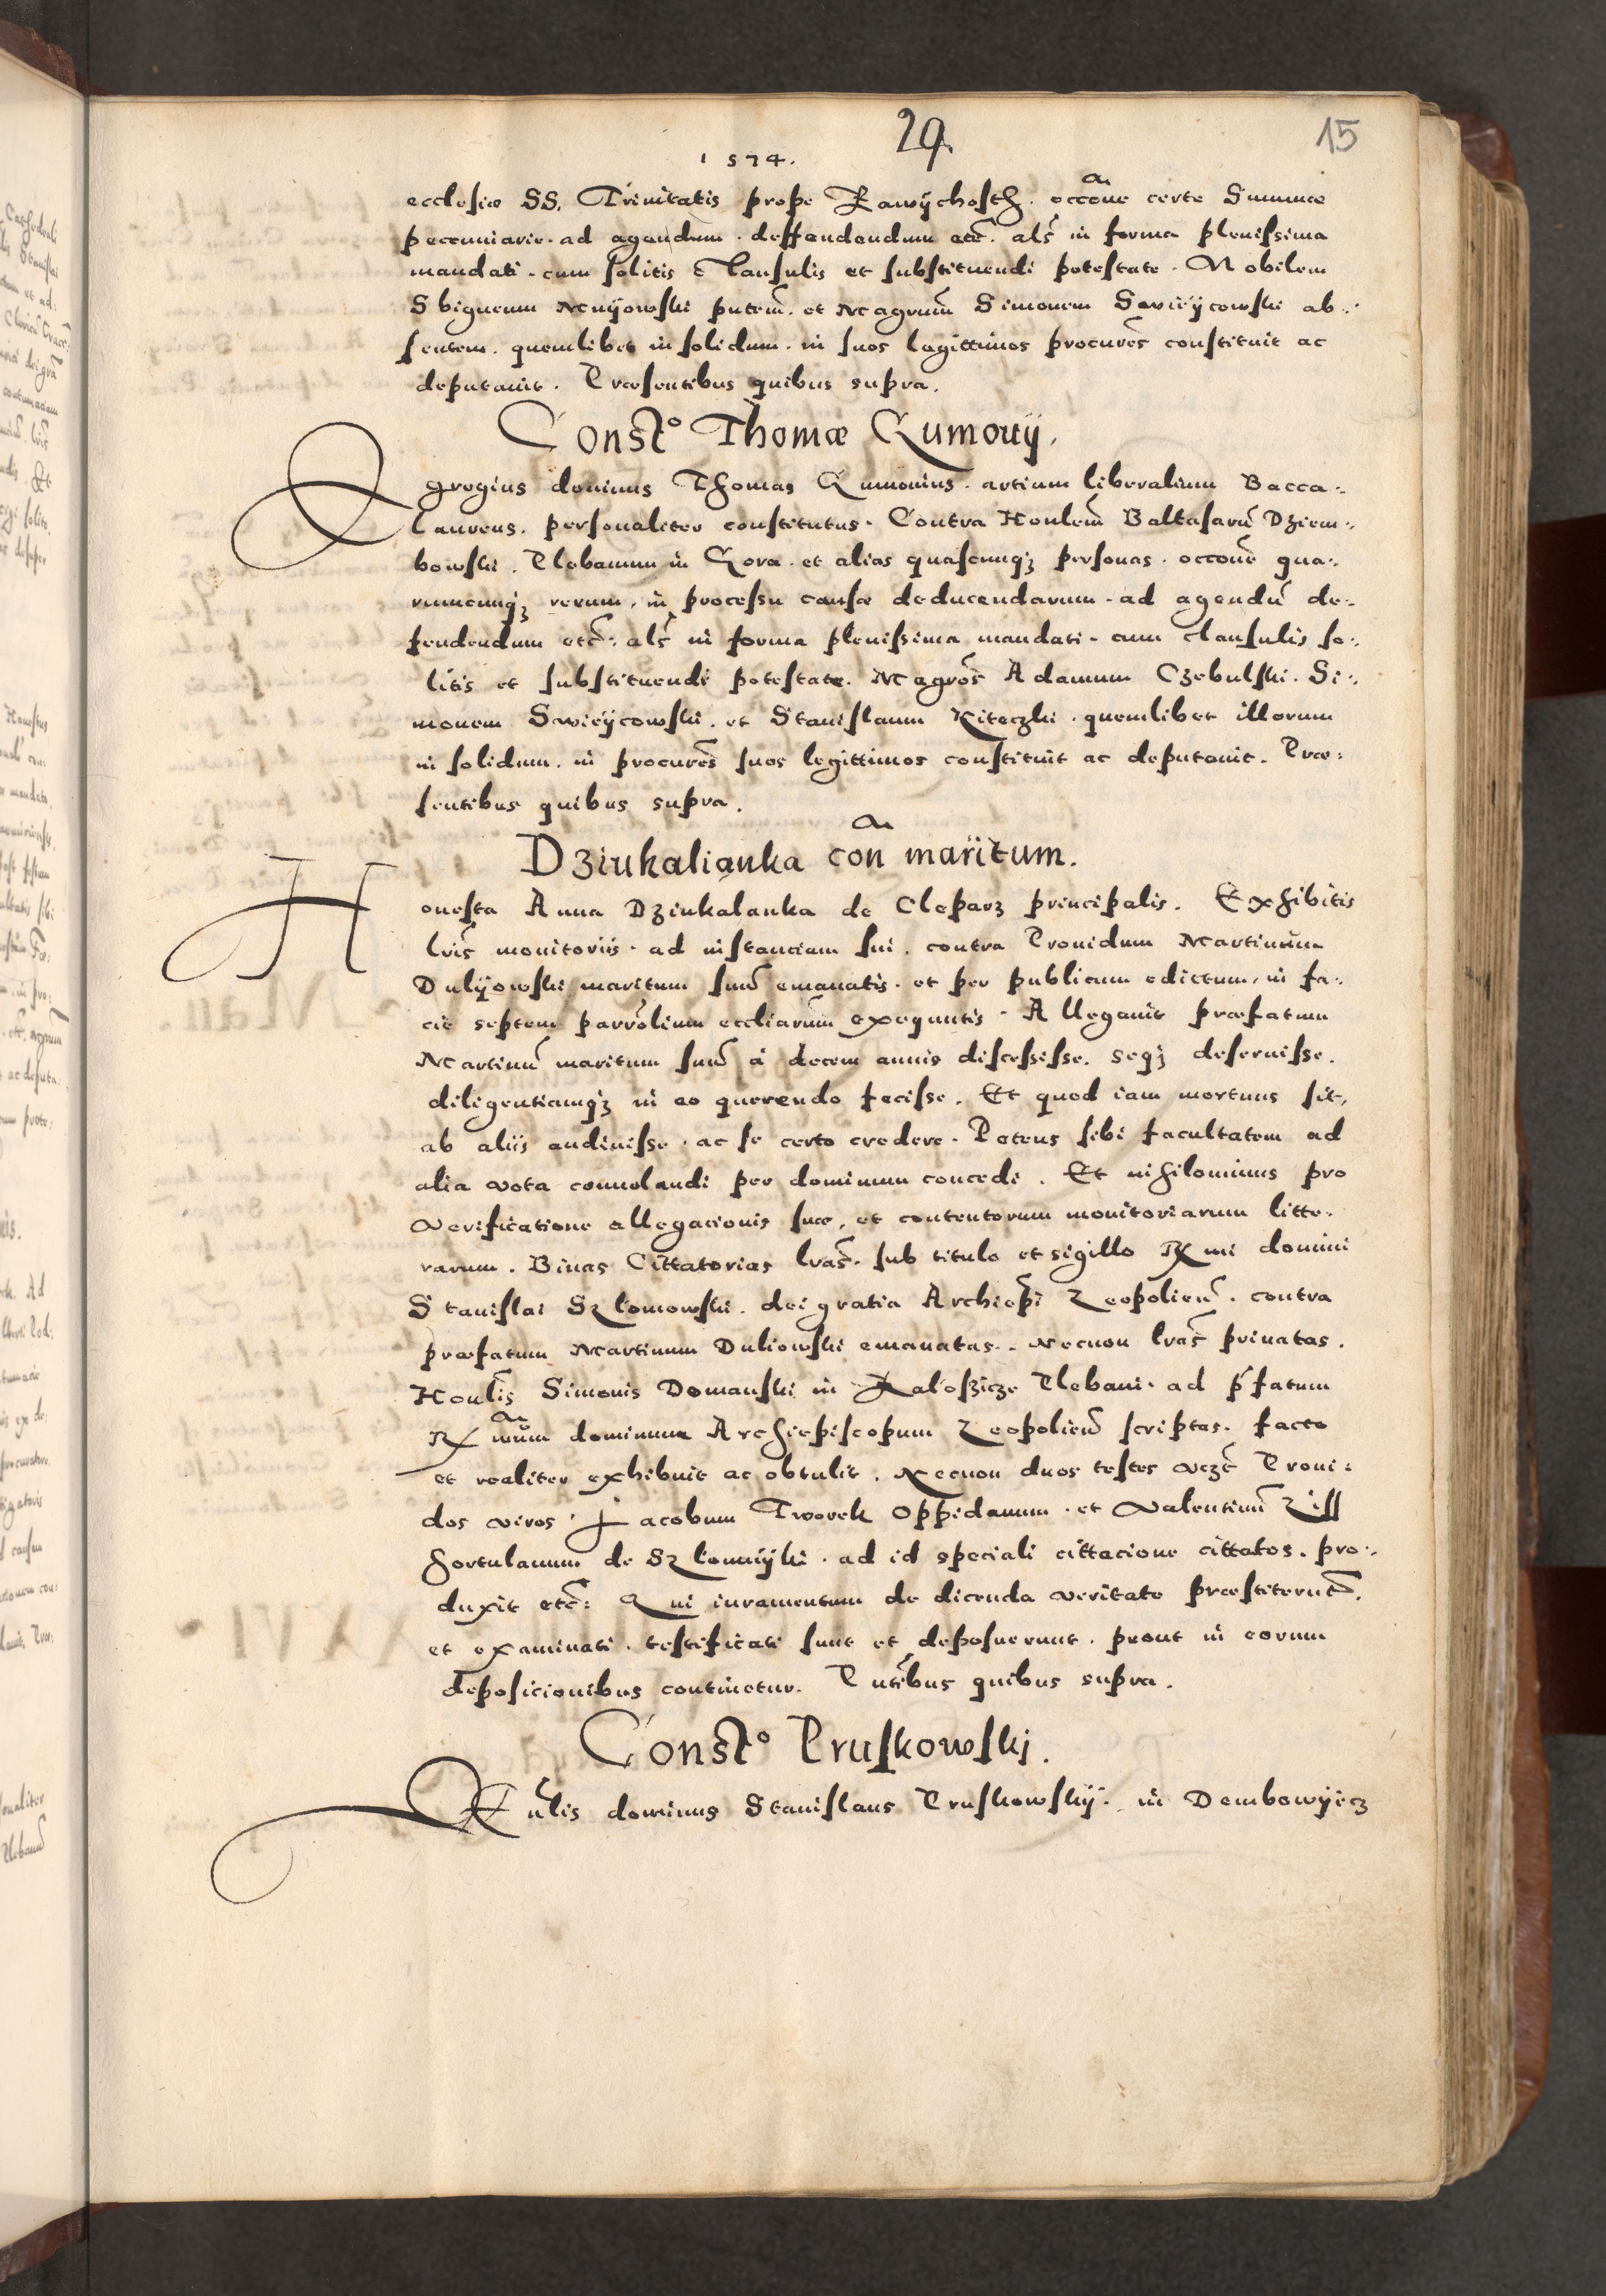 29.
15
1574.
ecclesiæ SS. Trinitatis prope Zawychosth. occōne certe Summæ
pecuniarie. ad agendum. deffendendum etc̄. als̄ in forma plenissima
mandati. cum solitis Clausulis et substituendi potestate. Nobilem
Sbigneum Muyowski pn̄tem. et Magrum̄ Simonem Swieÿcowski ab-
sentem. quemlibet in solidum. in suos legittimos procurēs constituit ac
deputauit. Præsentibus quibus supra.
Constº Thomæ Gumouij.
Egregius dominus Thomas Gumouius. artium liberalium Bacca-
laureus. personaliter constitutus. Contra Honlem̄ Baltasarū Dziem-
bowski. Plebanum in Gora. et alias quascunqȝ personas. occonē qua-
rumcunqȝ rerum, in processu causæ deducendarum. ad agendū de-
fendendum etc̄: als̄ in forma plenissima mandati. cum clausulis so-
litis et substituendi potestate. Magros̄ Adamum Czebulski. Si-
monem Swieÿcowski. et Stanislaum Kiteczki. quemlibet illorum
in solidum. in procurēs suos legittimos constituit ac deputauit. Præ-
sentibus quibus supra.
Dziukalianka con maritum.
Honesta Anna Dziukalanka de Cleparz principalis. Exhibitis
lris̄ monitoriis. ad instanciam sui. contra Prouidum Martinum
Dulÿowski maritum suū emanatis. et per publicum edictum, in fa-
cie septem parrolium eccliarum̄ exequutis. Alleganit præfatum
Martinū maritum suū à decem annis discessisse. seqȝ deseruisse.
diligentiamqȝ in eo querendo fecisse. Et quod iam mortuus sit,
ab aliis audiuisse. ac se certo credere. Petens sibi facultatem ad
alia vota conuolandi per dominum concedi. Et nihilominus pro
Verificatione allegacionis suæ, et contentorum monitoriarum litte-
rarum. Binas Cittatorias lras̄. sub titulo et sigillo Rx mi domini
Stanislai Szlomowski. dei gratia Archiepi̅ Leopolien̄. contra
præfatum Martinum Duliowski emanatas. Necnon lras̄ priuatas.
Honlis̄ Simonis Domanski in Kaloszicze Plebani. ad p̄fatum
Rx mum dominum Archiepiscopum Leopolien̄ scriptas. facto
et realiter exhibuit ac obtulit. Necnon duos testes vczt̄ Proui-
dos viros Jacobum Tworek Oppidanum. et Valentinū Liss
hortulanum de Szlomnÿki. ad id speciali cittacione cittatos. pro-
duxit etc̄: Qui iuramentum de dicenda veritate præstiterunt.
et examinati. testificati sunt et deposuerunt. prout in eorum
deposicionibus continetur. Pn̄tibus quibus supra.
Constº Pruskowskj.
Rn̄lis dominus Stanislaus Pruskowskÿ. in Dembowÿecz